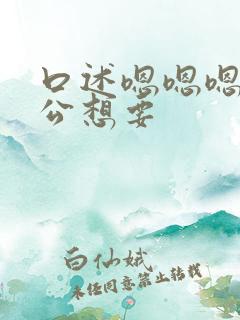 口述嗯嗯嗯
公想要
白仙娥
未经同意禁止转载